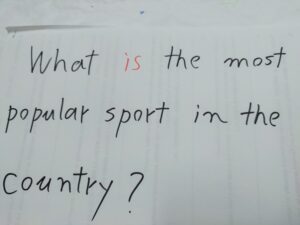 What is the most
popular sport in the
country?